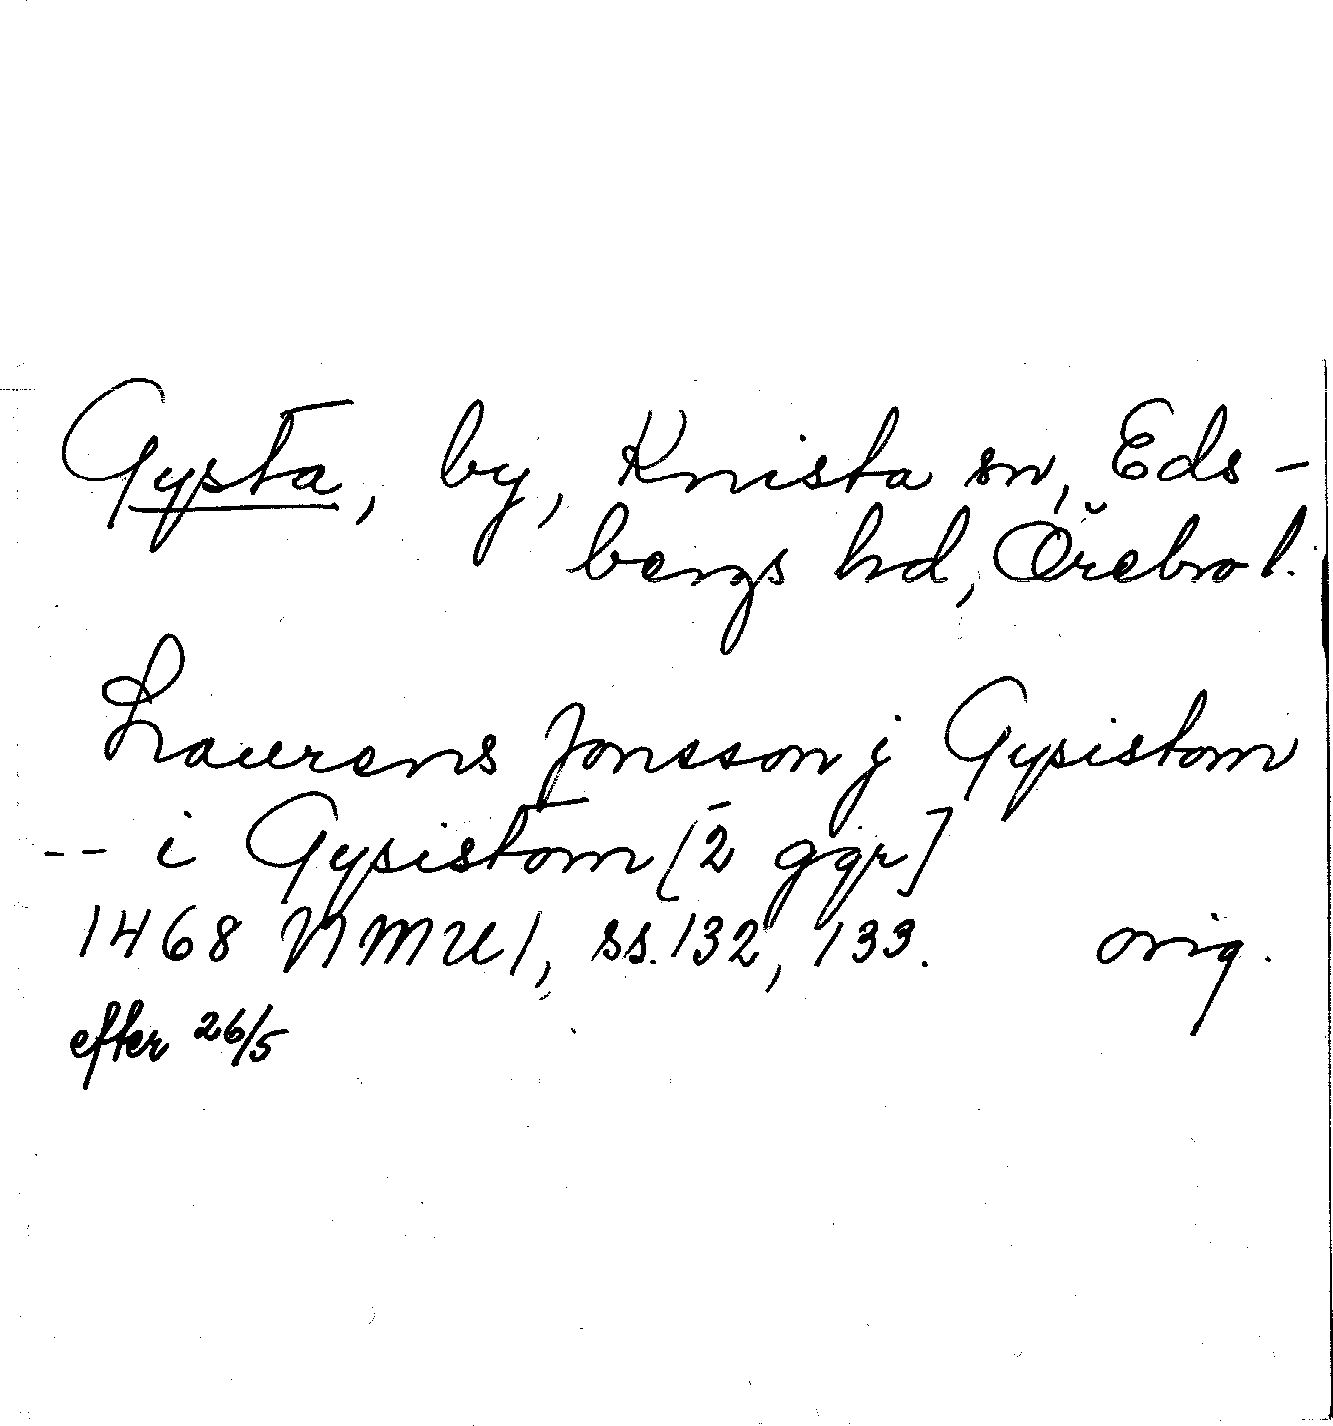 Gysta, by, Knista sn, Eds-
bergs hd, Örebro l.
Laurens Jonsson j Gysistom
-- i Gysistom [2 ggr]
1468 NMU 1, ss. 132, 133. orig.
efter 26/5